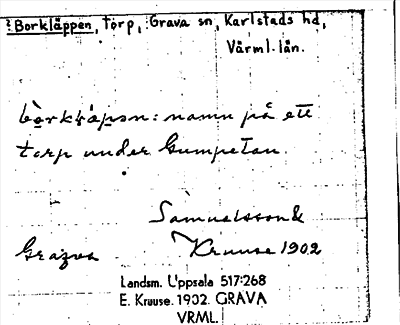 Borkläppen, torp, Grava sn, Karlstads hd,
Värml. län.
namn på ett
torp under Gumpetan.
Samuelsson &
Kruuse 1902
Landsm. Uppsala 517:268
E. Kruuse. 1902. GRAVA
VRML.